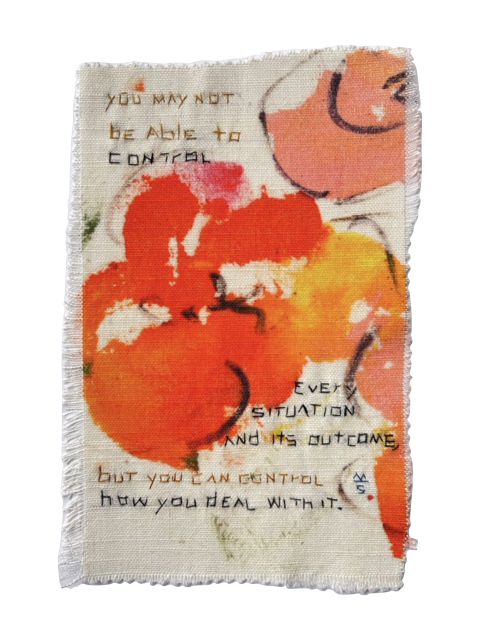 YOU MAY NOT
bE AblE to
CONTROL
EVERY
SITUATION
AND ITS OUTCOME,
bUT YOU CAN CONTROL
hOW YOU DEAL WITH IT.
MS